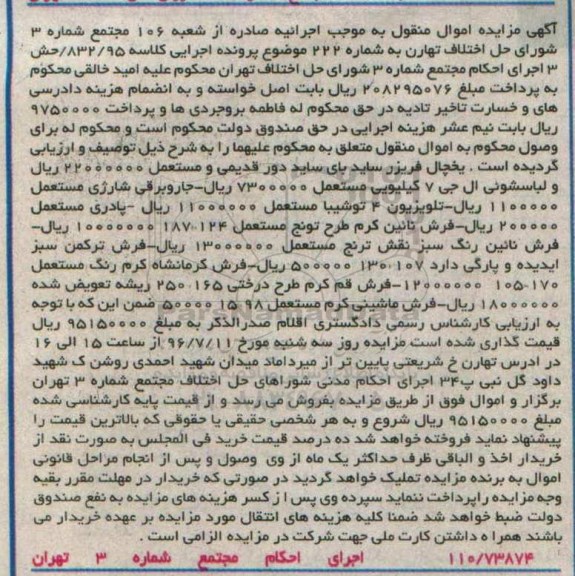 آگهی مزایده اموال منقول به موجب اجرائیه صادره از شعبه ۱۰۶ مجتمع شماره ۳
شورای حل اختلاف تهارن به شماره ۲۲۲ موضوع پرونده اجرایی کلاسه ۸۳۲/۹۵/حش
۳ اجرای احکام مجتمع شماره ۳ شورای حل اختلاف تهران محکوم علیه امید خالقی محکوم
به پرداخت مبلغ ۲۰۸۲۹۵۰۷۶ ریال بابت اصل خواسته و به انضمام هزینه دادرسی
های و خسارت تاخیر تادیه در حق محکوم له فاطمه بروجردی ها و پرداخت ۹۷۵۰۰۰۰
ریال بابت نیم عشر هزینه اجرایی در حق صندوق دولت محکوم است و محکوم له برای
وصول محکوم به اموال منقول متعلق به محکوم علیهما را به شرح ذیل توصیف و ارزیابی
گردیده است . یخچال فریزر ساید بای ساید دور قدیمی و مستعمل ۲۲۰۰۰۰۰۰ ریال
و لباسشوئی ال جی ۷ کیلویی مستعمل ۷۳۰۰۰۰۰ ریال-جاروبرقی شارژی مستعمل
۱۱۰۰۰۰۰ ریال-تلویزیون ۴ توشیبا مستعمل ۱۱۰۰۰۰۰۰ ریال -پادری مستعمل
۲۰۰۰۰۰ ریال-فرش نائین کرم طرح تونج مستعمل ۱۲۴ ۱۸۷ ۱۰۰۰۰۰۰۰ ریال-
فرش نائین رنگ سبز نقش ترنج مستعمل ۱۳۰۰۰۰۰۰ ریال-فرش ترکمن سبز
ایدیده و پارگی دارد ۱۰۷ ۱۳۰ ۵۰۰۰۰۰ ریال-فرش کرمانشاه کرم رنگ مستعمل
۱۷۰ ۱۰۵ ۱۲۰۰۰۰۰۰-فرش قم کرم طرح درختی ۱۶۵ ۲۵۰ ریشه تعویض شده
۱۸۰۰۰۰۰۰ ریال-فرش ماشینی کرم مستعمل ۹۸ ۱۵ ۵۰۰۰۰ ضمن این که با توجه
به ارزیابی کارشناس رسمی دادگستری اقلام صدرالذکر به مبلغ ۹۵۱۵۰۰۰۰ ریال
قیمت گذاری شده است مزایده روز سه شنبه مورخ ۹۶/۷/۱۱ از ساعت ۱۵ الی ۱۶
در ادرس تهارن خ شریعتی پایین تر از میرداماد میدان شهید احمدی روشن ک شهید
داود گل نبی پ۳۴ اجرای احکام مدنی شوراهای حل اختلاف مجتمع شماره ۳ تهران
برگزار و اموال فوق از طریق مزایده بفروش می رسد و از قیمت پایه کارشناسی شده
مبلغ ۹۵۱۵۰۰۰۰ ریال شروع و به هر شخصی حقیقی یا حقوقی که بالاترین قیمت را
پیشنهاد نماید فروخته خواهد شد ده درصد قیمت خرید فی المجلس به صورت نقد از
خریدار اخذ و الباقی ظرف حداکثر یک ماه از وی وصول و پس از انجام مراحل قانونی
اموال به برنده مزایده تملیک خواهد گردید در صورتی که خریدار در مهلت مقرر بقیه
وجه مزایده راپرداخت ننماید سپرده وی پس از کسر هزینه های مزایده به نفع صندوق
دولت ضبط خواهد شد ضمنا کلیه هزینه های انتقال مورد مزایده بر عهده خریدار می
باشند همرا ه داشتن کارت ملی جهت شرکت در مزایده الزامی است .
۱۱۰/۷۳۸۷۴ اجرای احکام مجتمع شماره ۳ تهران